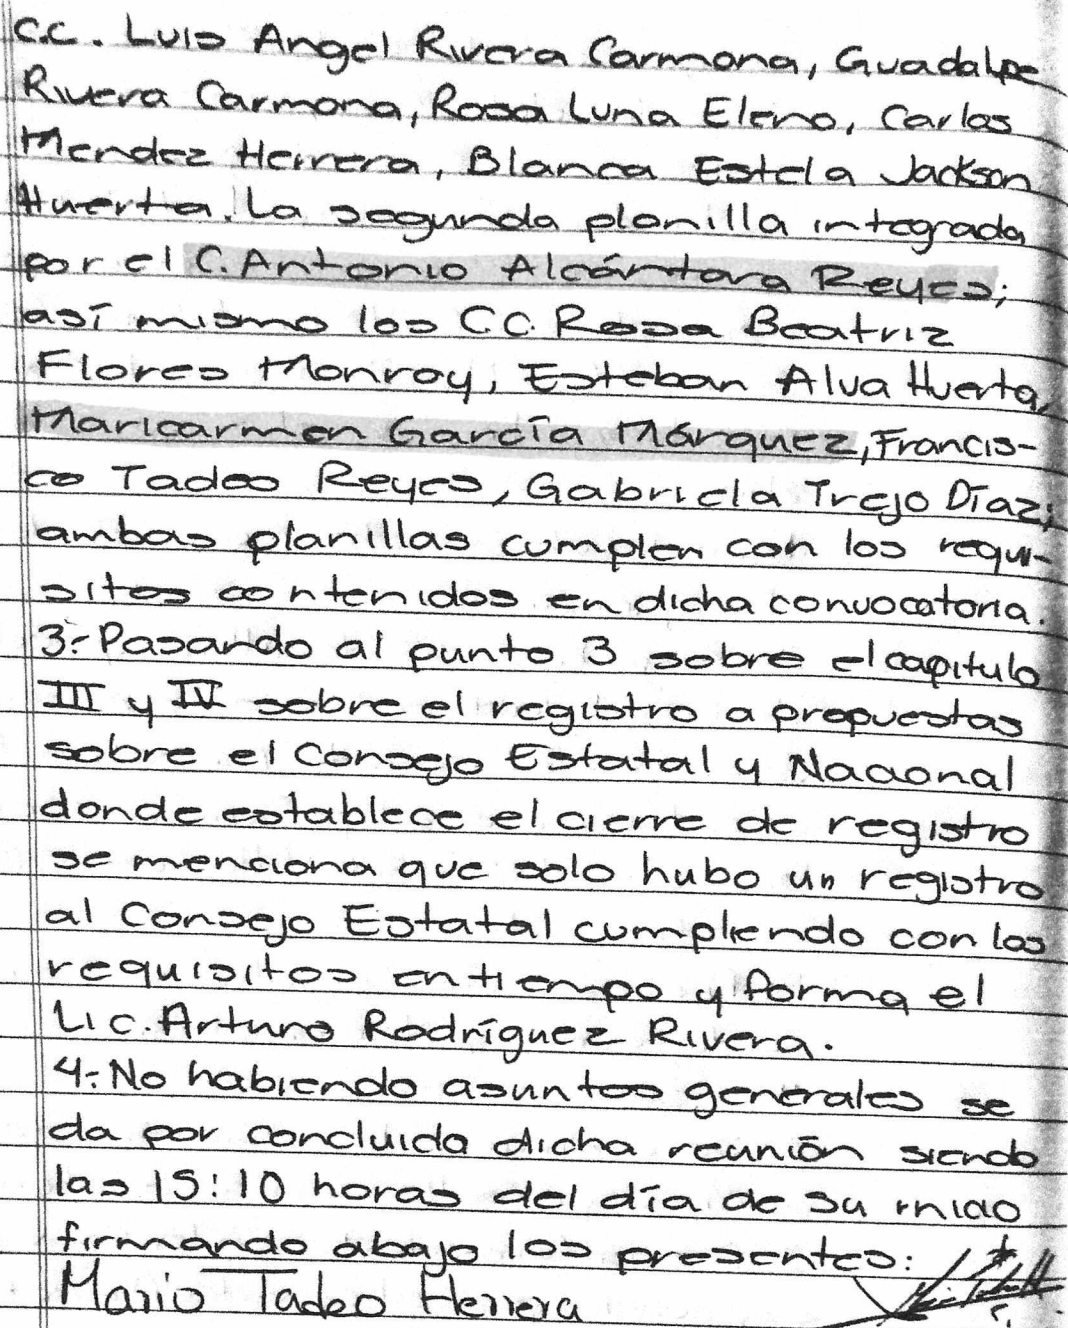 C.C. Luis Angel Rivera Carmona, Guadalpe
Rivera Carmona, Rosa Luna Eleno, Carlos
Mendez Herrera, Blanca Estela Jackson
Huerta. La segunda planilla integrada
por el C. Antonio Alcántara Reyes;
así mismo los C.C. Rosa Beatriz
Flores Monroy, Esteban Alva Huerta,
Maricarmen García Márquez, Francis-
co Tadeo Reyes, Gabriela Trejo Díaz;
ambas planillas cumplen con los requi-
sitos contenidos en dicha convocatoria.
3.- Pasando al punto 3 sobre el capitulo
III y IV sobre el registro a propuestas
sobre el Consejo Estatal y Nacional
donde establece el cierre de registro
se menciona que solo hubo un registro
al Consejo Estatal cumpliendo con los
requisitos en tiempo y forma el
Lic. Arturo Rodríguez Rivera.
4.- No habiendo asuntos generales se
da por concluida dicha reunión siendo
las 15:10 horas del día de su inicio
firmando abajo los presentes:
Mario Tadeo Herrera